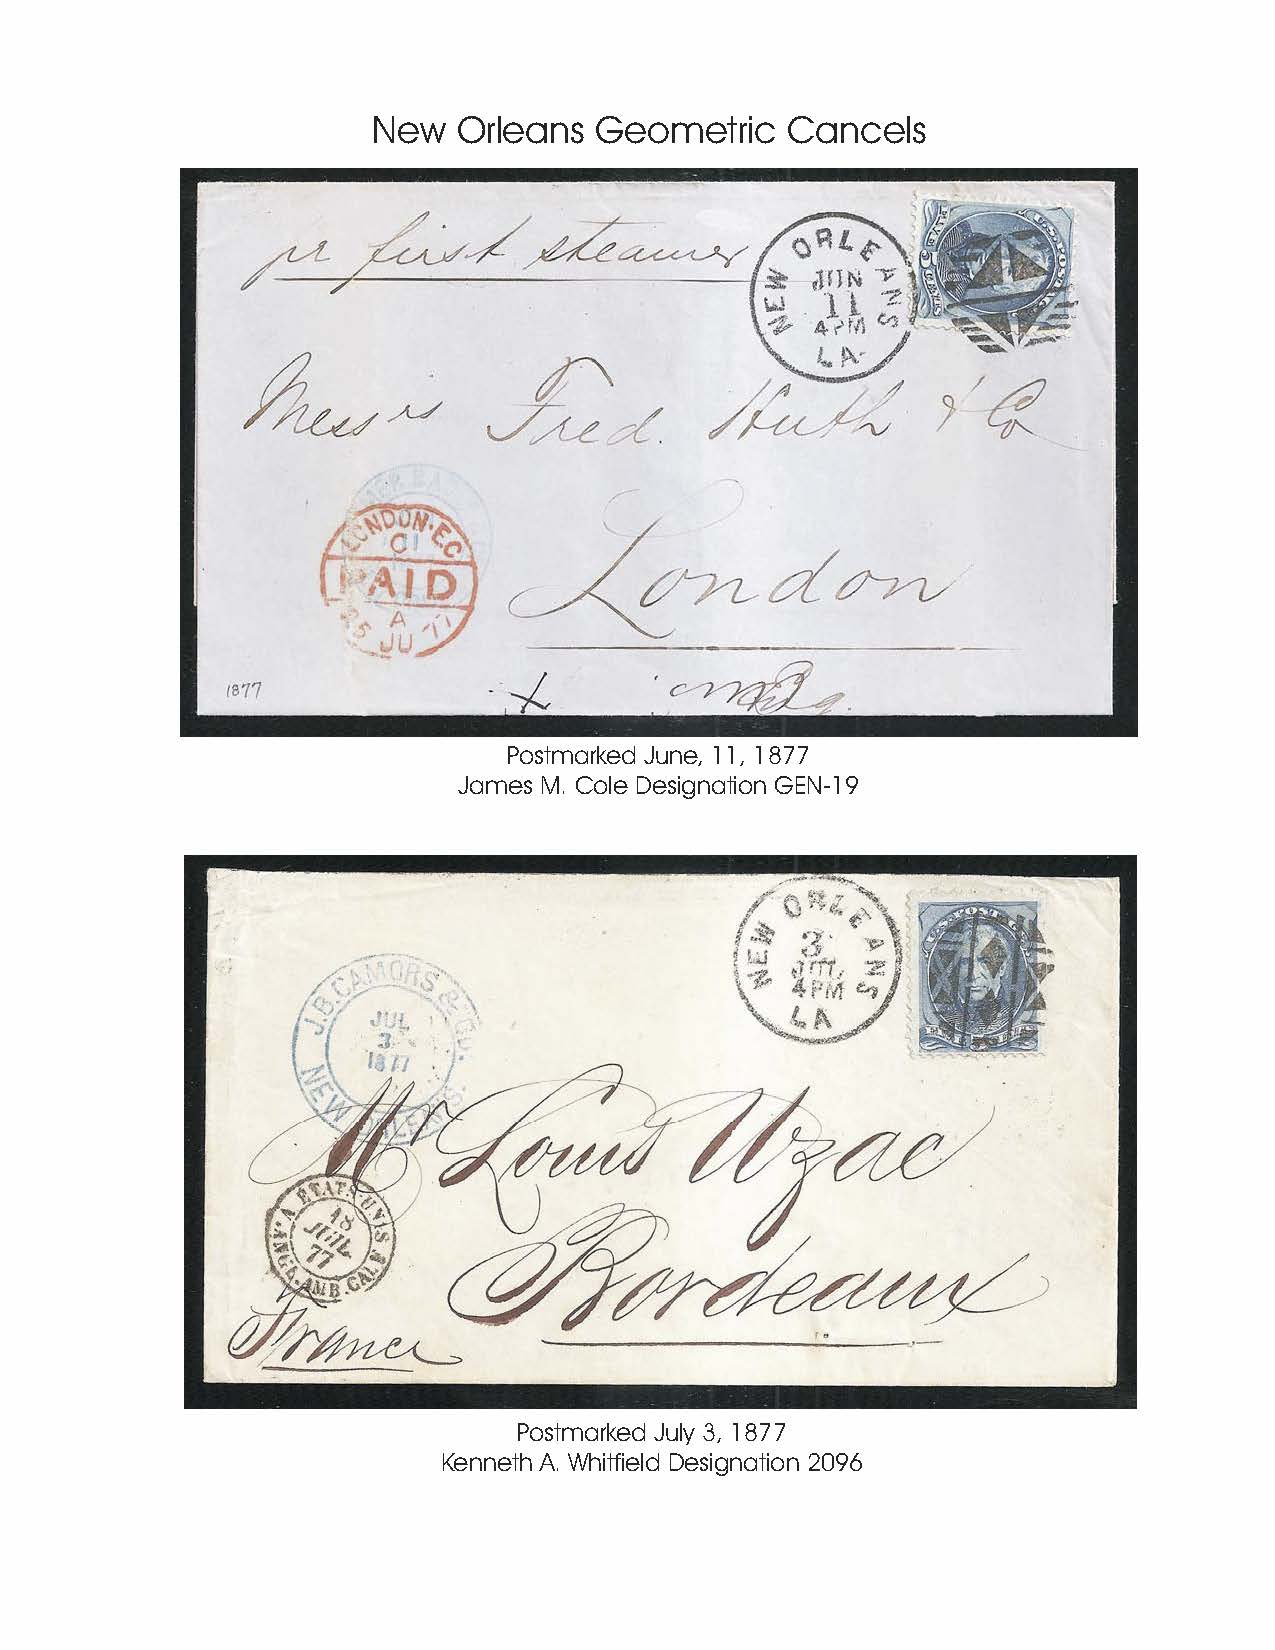 New Orleans Geometric Cancels
pr first steamer
NEW ORLEANS
JUN
11
4 PM
LA.
FIVE 5 CENTS
Messrs Fred. Huth & Co
LONDON·E.C
C1
PAID
A
25 JU 77
London
1877
x
Postmarked June, 11, 1877
James M. Cole Designation GEN-19
NEW ORLEANS
3
JUL
4PM
LA
J.B. CAMORS & CO.
JUL
3
1877
NEW ORLEANS.
Mr Louis Uzac
ETATS-UNIS
18
JUIL
77
AMB.CAL
Bordeaux
France
Postmarked July 3, 1877
Kenneth A. Whitfield Designation 2096